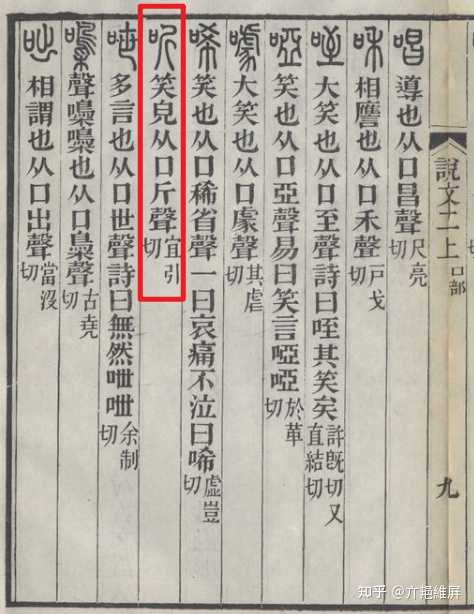 說文二上 口部
九
唱 導也从口昌聲 尺亮切
和 相䧹也从口禾聲 戶戈切
咥 大笑也从口至聲詩曰咥其笑矣 許旣切又直結切
啞 笑也从口亞聲易曰笑言啞啞 於革切
噱 大笑也从口豦聲 其虐切
唏 笑也从口稀省聲一曰哀痛不泣曰唏 虛豈切
听 笑皃从口斤聲 宜引切
呭 多言也从口世聲詩曰無然呭呭 余制切
嘄 聲嘄嘄也从口梟聲 古堯切
咄 相謂也从口出聲 當沒切
知乎 @亣郒維屏